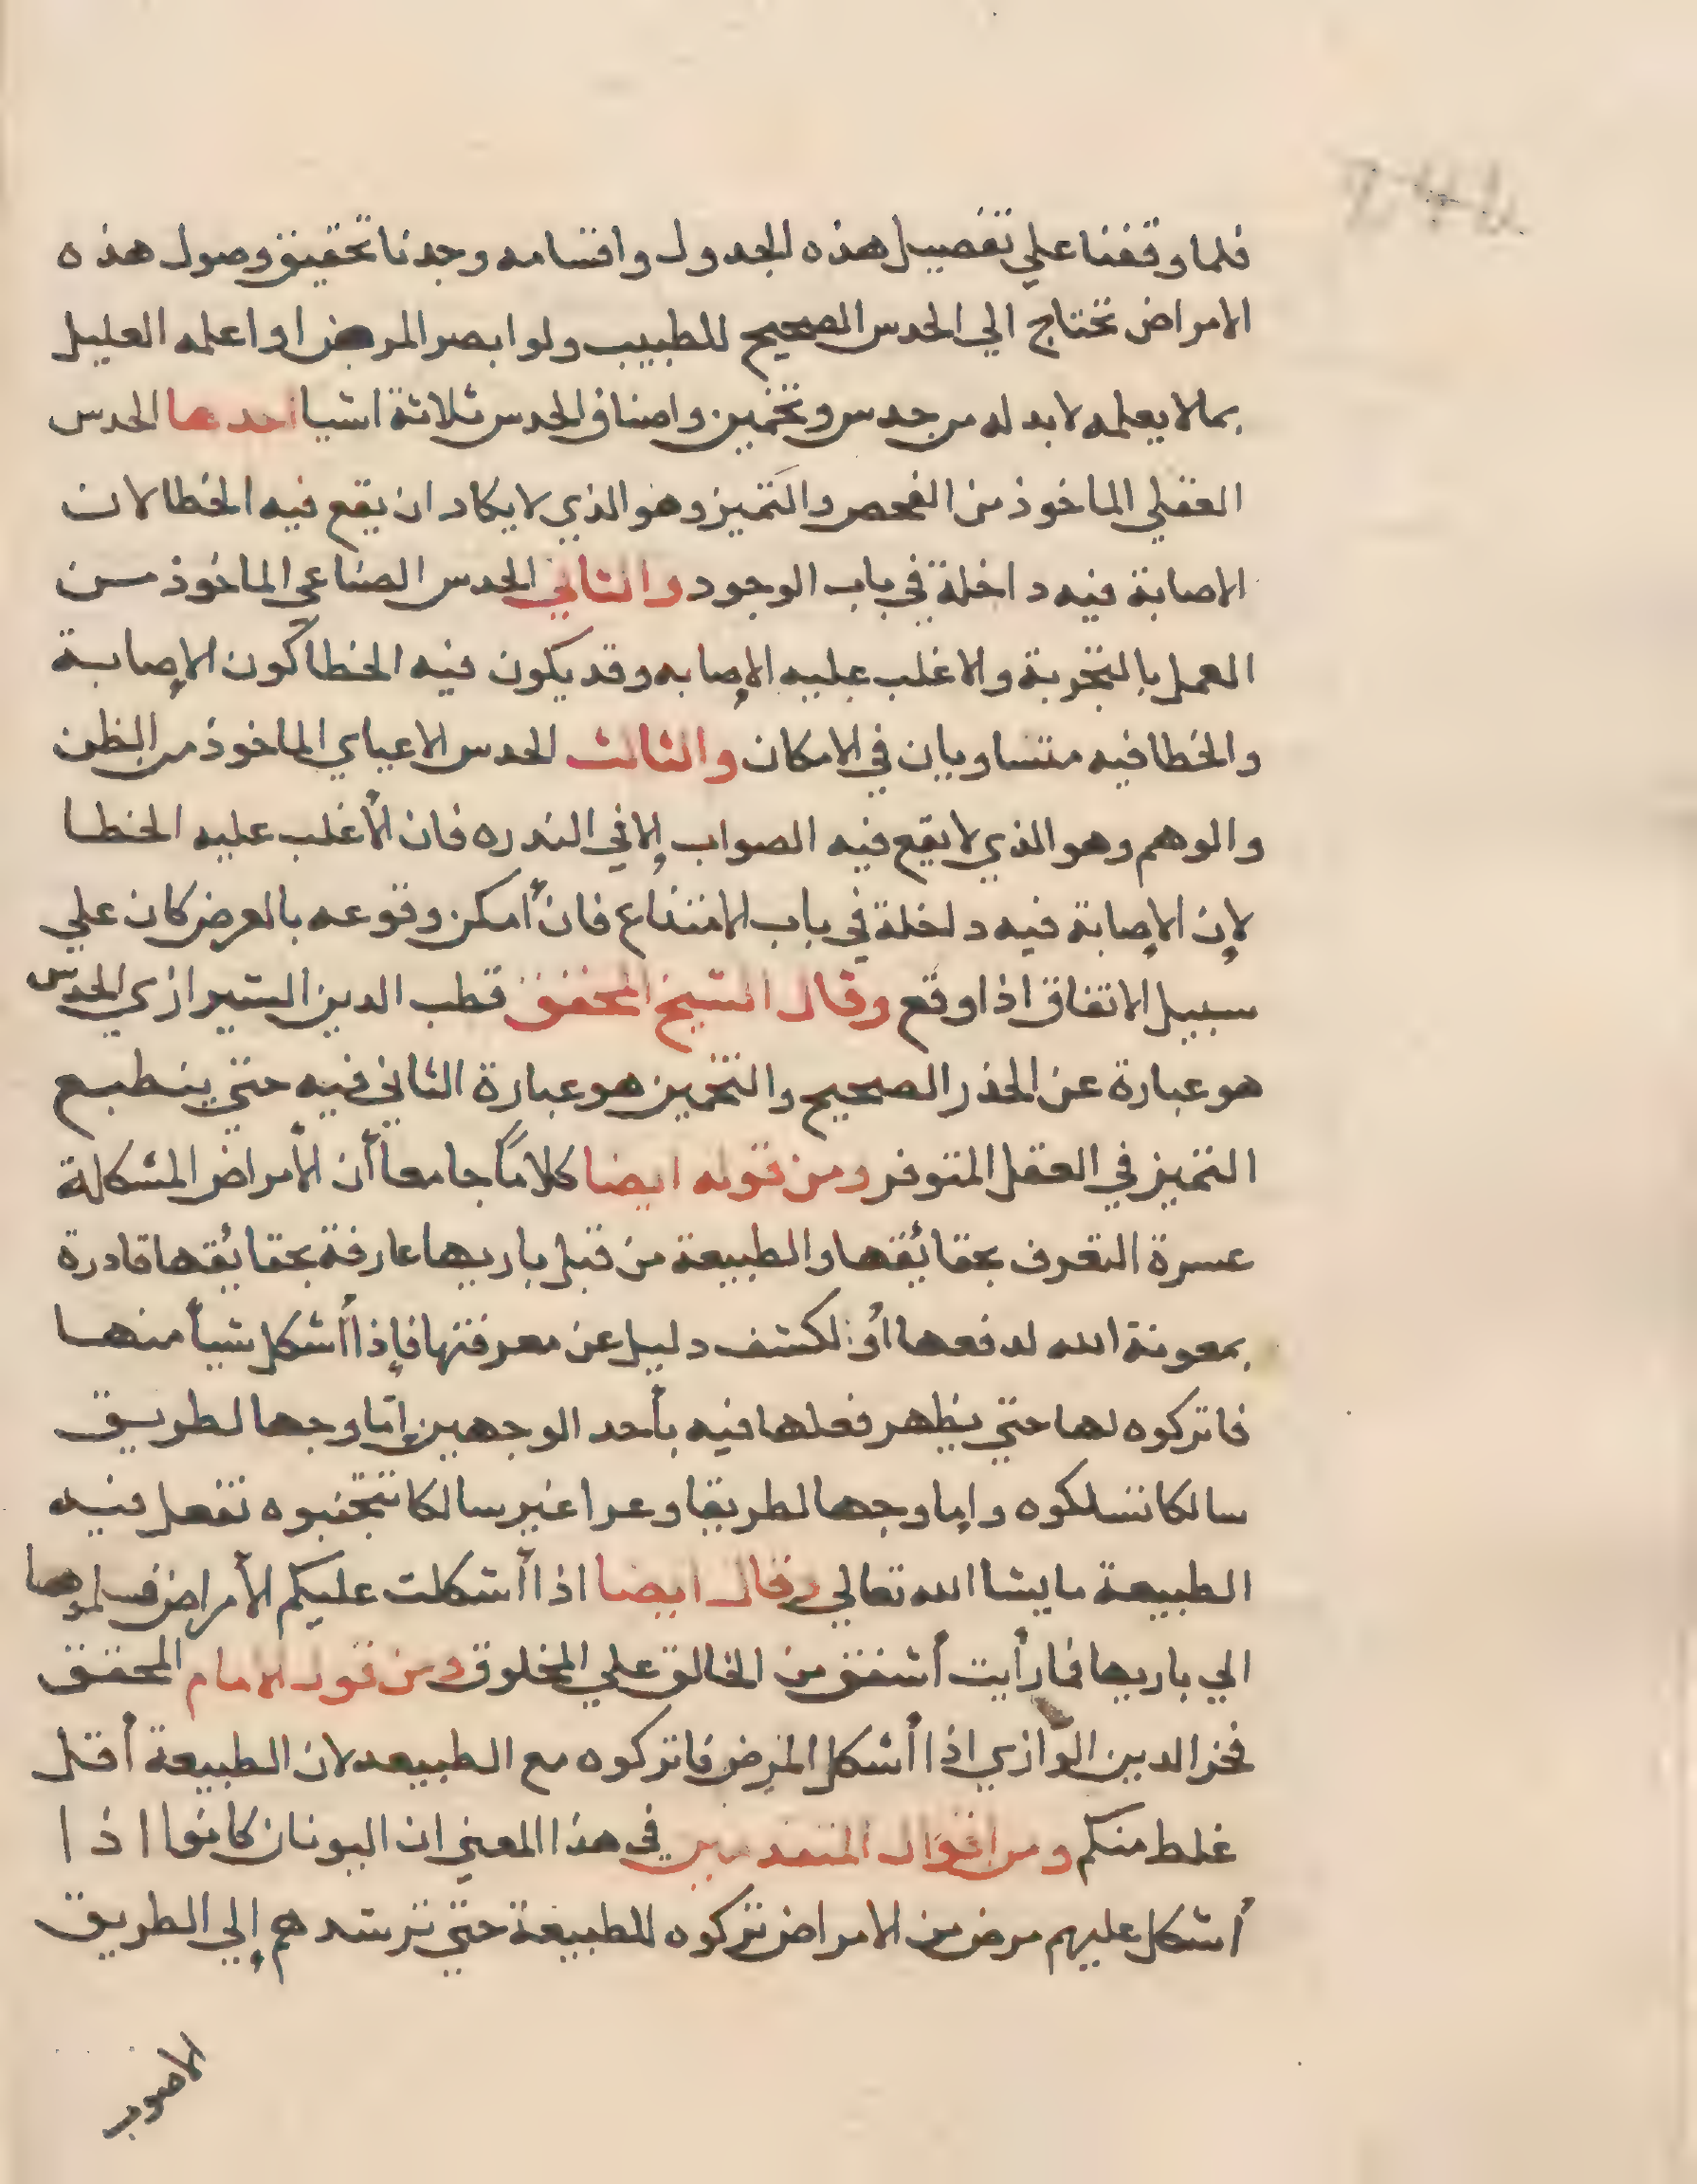 فلما وقفنا علي تفصيل هذه الجدول واقسامه وجدنا تحقيق وصول هذه
الامراض تحتاج الي الحدس الصحيح للطبيب ولو ابصر المرض او اعلمه العليل
بما لا يعلمه لا بد له من حدس وتخمين واصناف الحدس ثلاثة اشيا احدها الحدس
العقلي الماخوذ من الفحص والتميز وهو الذي لا يكاد ان يقع فيه الخطا لان
الاصابة فيه داخلة في باب الوجود والثاني الحدس الصناعي الماخوذ من
العمل بالتجربة والاغلب عليه الإصابه وقد يكون فيه الخطا كون الإصابة
والخطا فيه متساويان في الامكان والثالث الحدس الاعياي الماخوذ من الظن
والوهم وهو الذي لا يقع فيه الصواب إلا في الندره فان الأغلب عليه الخطا
لإن الإصابة فيه داخلة في باب الامتناع فان أمكن وقوعه بالعرض كان علي
سبيل الاتفاق اذا وقع وقال الشيخ المحقق قطب الدين الشيرازي الحدس
هو عبارة عن الحذر الصحيح والتخمين هو عبارة الثاني فيه حتي ينطبع
التميز في العقل المتوفر ومن قوله ايضا كلاماً جامعا أن الأمراض المشكلة
عسرة التعرف بحقائقها والطبيعة من قبل باريها عارفة بحقائقها قادرة
بمعونة الله لدفعها أو لكشف دليل عن معرفتها فإذا أشكل شيأ منها
فاتركوه لها حتي يظهر فعلها فيه بأحد الوجهين إما وجها لطريق
سالكا تسلكوه وإما وجها لطريقا وعرا غير سالكا تتجنبوه تفعل فيه
الطبيعة ما يشا الله تعالي وقال ايضا اذا أشكلت عليكم الأمراض فسلموها
الي باريها فما رأيت أشفق من الخالق علي المخلوق ومن قول الامام المحقق
فخر الدين الرازي اذا أشكل المرض فاتركوه مع الطبيعه لان الطبيعة أقل
غلط منكم ومن اقوال المتقدمين في هذا المعني ان اليونان كانوا اذا
أشكل عليهم مرض من الامراض تركوه للطبيعة حتي ترشدهم إلي الطريق
الاصوب